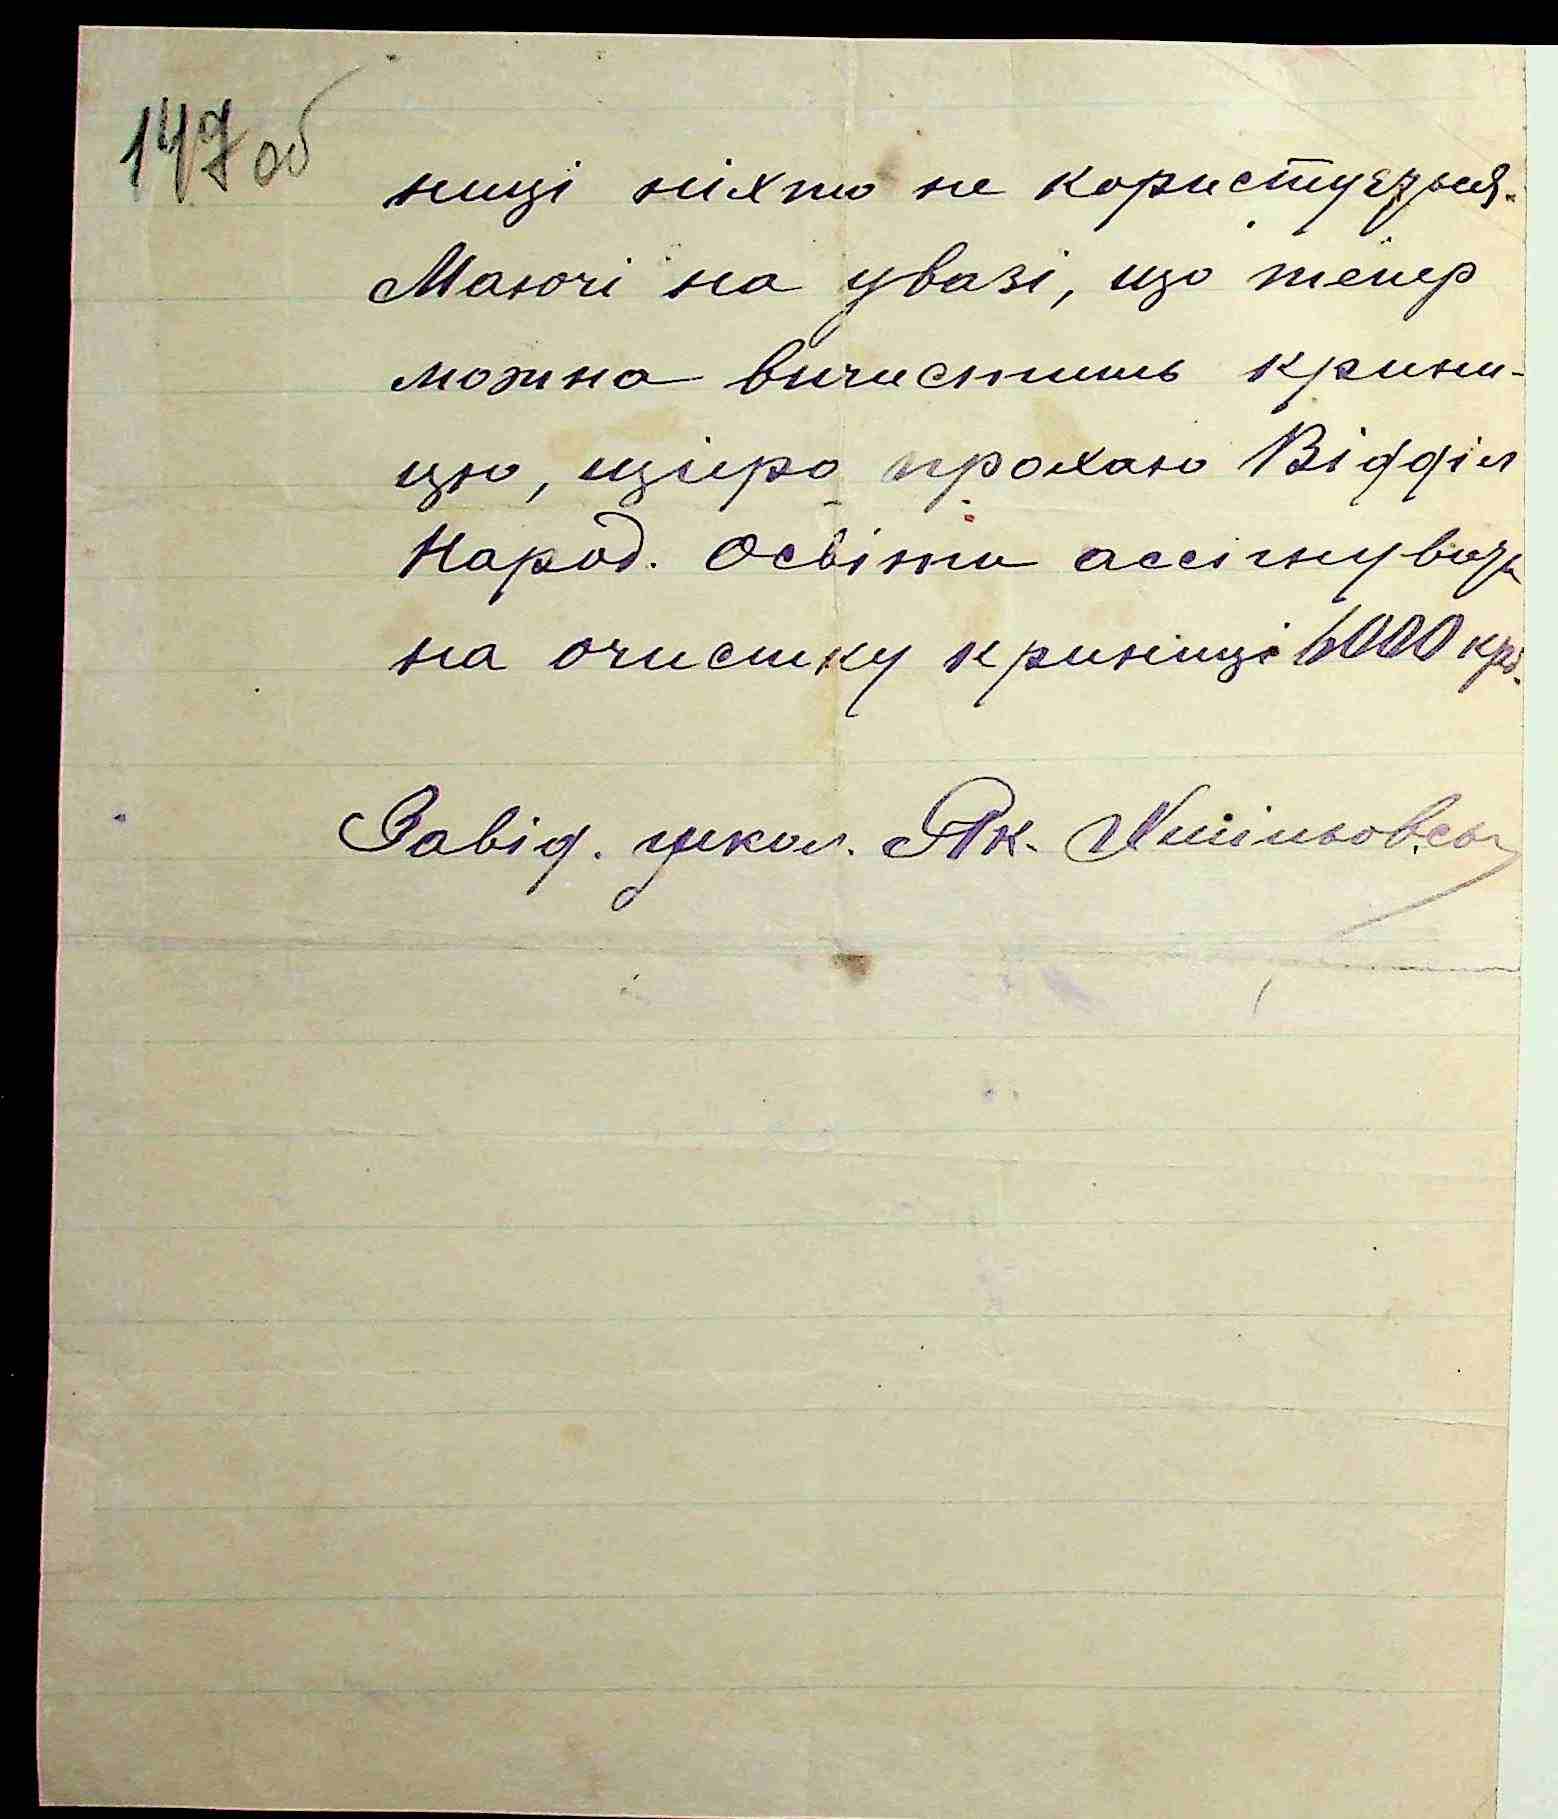 147 об
ниці ніхто не користується.
Маючі на увазі, що тепер
можна вичистить крини-
цю, щіро прохаю Відділ
Народ. Освіти ассігнувать
на очистку криніці 6000 крб.
Завід. школ. Як.